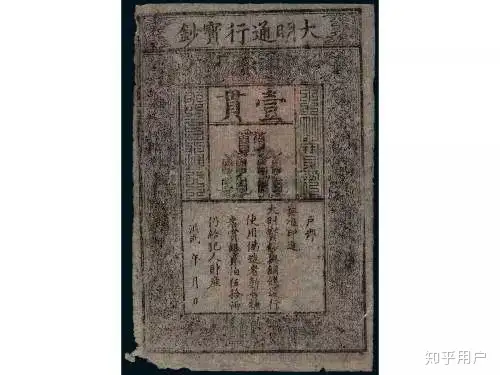 大明通行寶鈔
壹貫
戶部
奏准印造
大明寶鈔與銅錢通行
使用偽造者斬告捕
者賞銀貳佰伍拾兩
仍給犯人財產
洪武 年 月 日
知乎用户